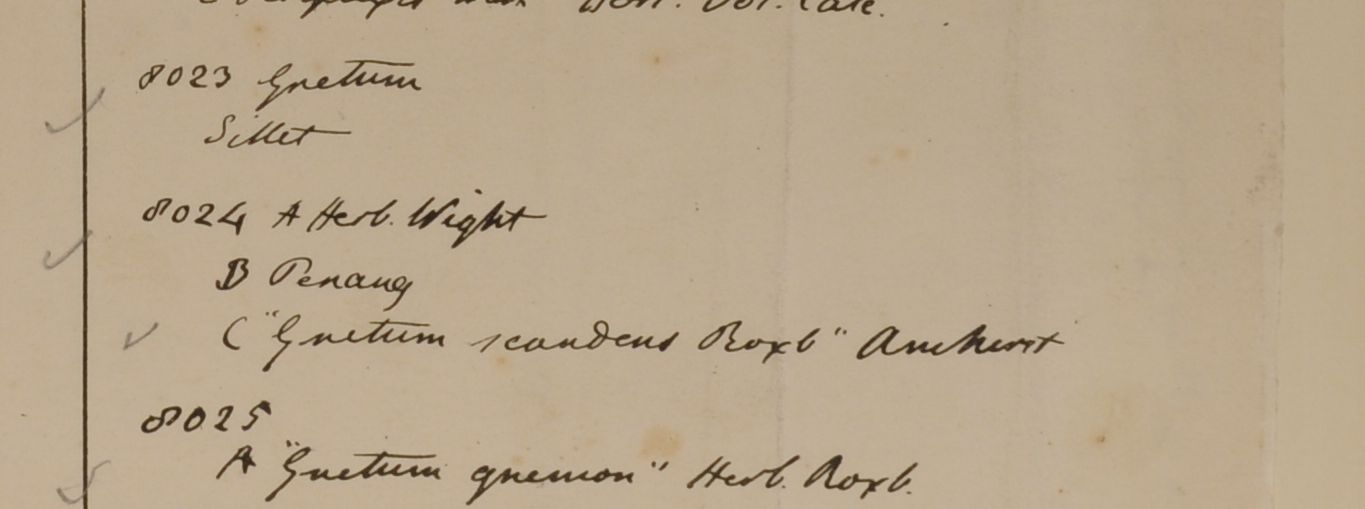 Hort. Bot. Calc.
8023 Gnetum
Sillet
8024 A Herb. Wight
B Penang
C "Gnetum scandens Roxb" Amherst
8025
A "Gnetum gnemon" Herb. Roxb.